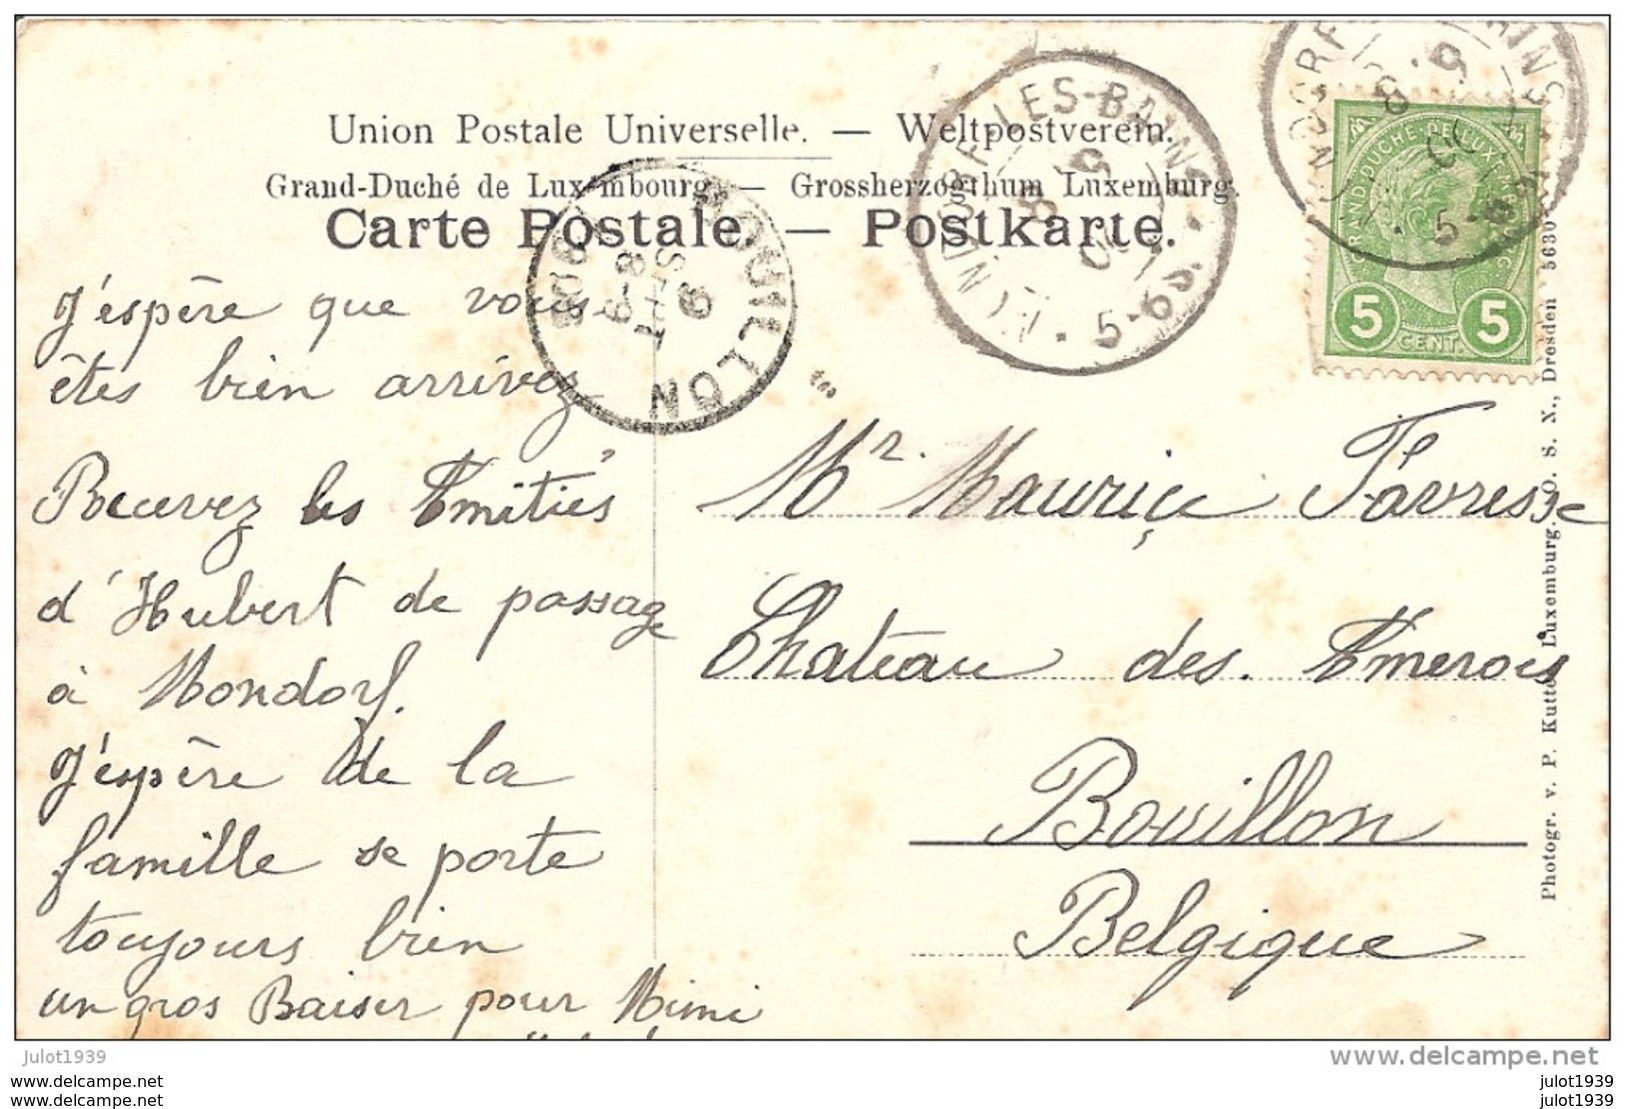 Union Postale Universelle. — Weltpostverein.
Grand-Duché de Luxembourg. — Grossherzogthum Luxemburg.
Carte Postale. — Postkarte.
MONDORF-LES-BAINS
5-6S
BOUILLON
6-8
JUIL
1908
GRAND DUCHÉ DE LUXEMBOURG
5 CENT. 5
J'espère que vous
êtes bien arrivez
Recevez les Amitiés
d'Hubert de passage
à Mondorf.
J'espère de la
famille se porte
toujours bien
un gros Baiser pour Mimi
Mr. Maurice Favresse
Chateau des Amerois
Bouillon
Belgique
Photogr. v. P. Kutter, Luxemburg. O. S. X., Dresden 5630
julot1939
www.delcampe.net
www.delcampe.net
www.delcampe.net
julot1939
julot1939